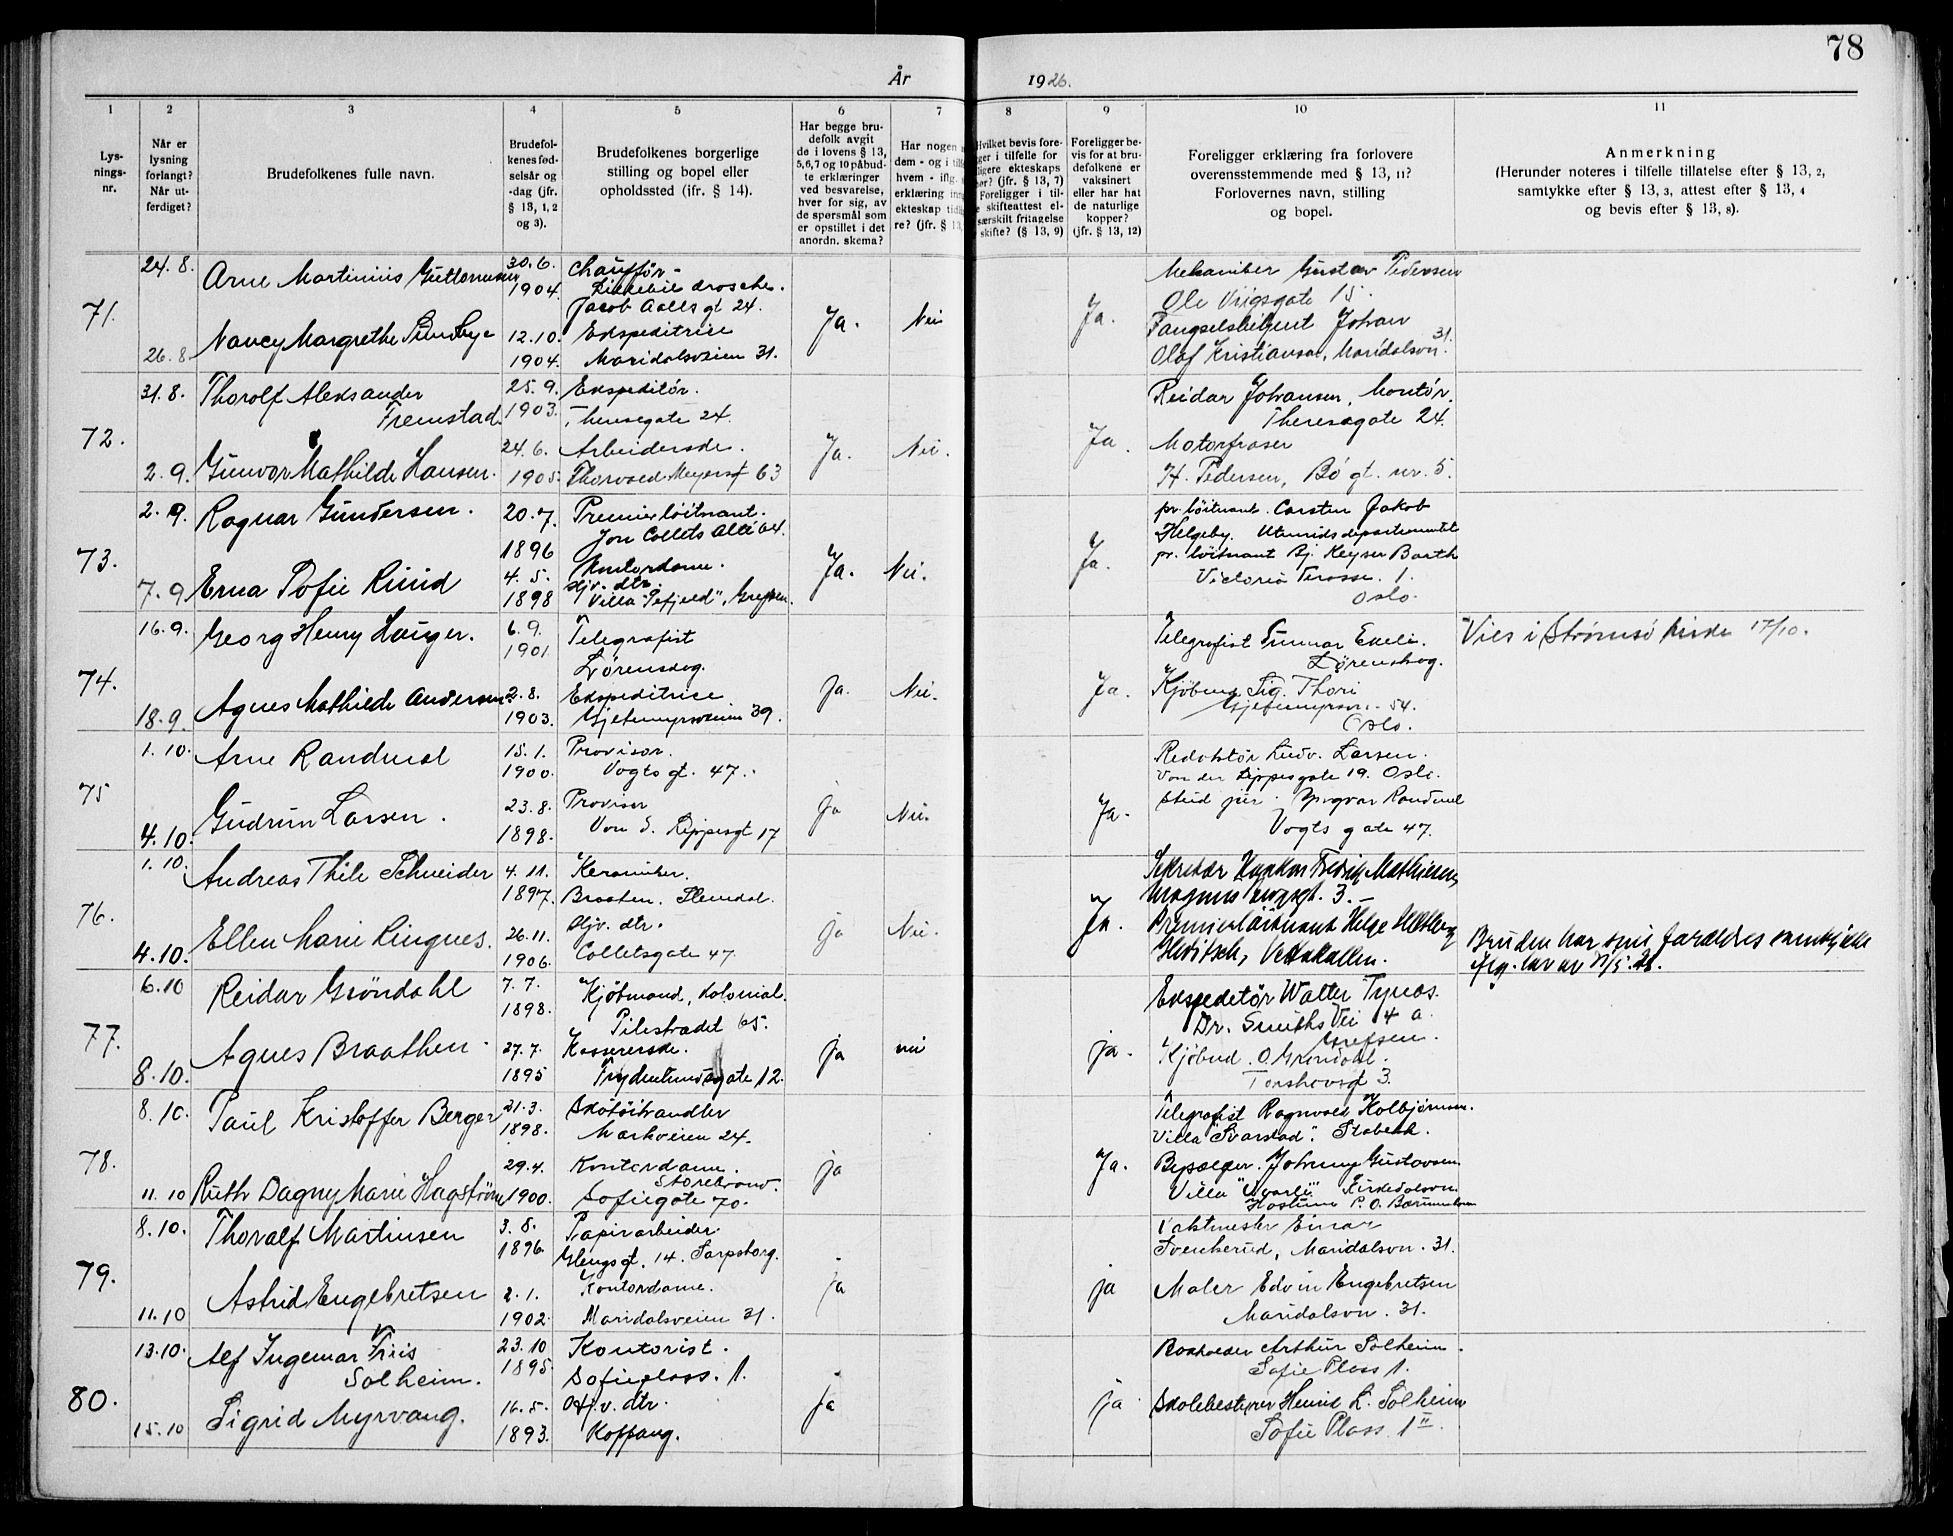 78
År 1926.
1 2 3 4 5 6 7 8 9 10 11
Lys-
nings-
nr.
Når er
lysning
forlangt?
Når ut-
ferdiget?
Brudefolkenes fulle navn.
Brudefol-
kenes fød-
selsår og
-dag (jfr.
§ 13, 1, 2
og 3).
Brudefolkenes borgerlige
stilling og bopel eller
opholdssted (jfr. § 14).
Har begge bru-
defolk avgit
de i lovens § 13,
5, 6, 7 og 10 påbud-
te erklæringer
ved besvarelse,
hver for sig, av
de spørsmål som
er opstillet i det
anordn. skema?
Har nogen
dem - og i
hvem - iflg.
erklæring
ekteskap
re? (jfr. § 13,
Hvilket bevis fore-
ger i tilfelle for
ligere ekteskaps
ør? (jfr. § 13, 7)
Foreligger i til-
e skifteattest el-
særskilt fritagelse
skifte? (§ 13, 9)
Foreligger be-
vis for at bru-
defolkene er
vaksinert
eller har hat
de naturlige
kopper?
(jfr. § 13, 12)
Foreligger erklæring fra forlovere
overensstemmende med § 13, 11?
Forlovernes navn, stilling
og bopel.
Anmerkning
(Herunder noteres i tilfelle tillatelse efter § 13, 2,
samtykke efter § 13, 3, attest efter § 13, 4
og bevis efter § 13, 8).
71.
24. 8.
26. 8
Arne Martinius Guttormsen
Nancy Margrethe
30. 6.
1904.
12. 10.
1904.
Chauffør -
drosche.
Jacob Aalls gt 24.
Ekspeditrise
Maridalsveien 31.
Ja.
Nei
Ja.
Mekaniker Gustav Pedersen
Ole Vigsgate 15.
Fængselsbetjent Johan
Olaf Kristiansen, Maridalsvn. 31.
72.
31. 8.
2. 9.
Thorolf Aleksander
Fremstad.
Gunvor Mathilde Hansen.
25. 9.
1903.
24. 6.
1905.
Ekspeditør.
Theresegate 24.
Arbeiderske.
Thorvald Meyersgt 63
Ja.
Nei.
Ja.
Reidar Johansen, Montør.
Theresegate 24.
Motorfraser
H. Pedersen, Bø gt. nr. 5.
73.
2. 9.
7. 9
Ragnar Gundersen.
Erna Sofie Ruud
20. 7.
1896
4. 5.
1898
Premierløitnant.
Jon Collets Allé 64.
Kontordame.
Hjv. dtr.
Villa "Sefjeld", Grefsen.
Ja.
Nei.
Ja.
pr. løitnant. Carsten Jakob
Helgeby. Utenriksdepartementet
pr. løitnant Bj. Keyser Barth
Victoria Terasse. 1.
Oslo.
74.
16. 9.
18. 9.
Georg Henry Hauger.
Agnes Mathilde Andersen.
6. 9.
1901
2. 8.
1903.
Telegrafist
Lørenskog.
Ekspeditrise
Gjetemyrsveien 39.
Ja.
Nei.
Ja.
Telegrafist Gunnar
Lørenskog.
Kjøbm. Sig. Thori
Gjetemyrsvn. 54.
Oslo.
Vies i Strømsø kirke 17/10.
75
1. 10.
4. 10.
Arne Randmæl
Gudrun Larsen.
15. 1.
1900.
23. 8.
1898.
Provisor.
Vogts gt. 47.
Provisor
Von d. Lippesgt 17
Ja
Nei.
Ja.
Redaktør Ludv. Larsen.
Von der Lippesgate 19. Oslo.
Stud jur. Yngvar Randmæl
Vogts gate 47.
76.
1. 10.
4. 10.
Andreas Thile Schneider
Ellen Marie Ringnes.
4. 11.
1897.
26. 11.
1906.
Keramiker.
Braaten. Slemdal.
Hjv. dtr.
Colletsgate 47
ja
Nei.
Ja.
Sekretær Haakon Fredrik Mathiesen,
Magnus Bergsgt. 3.
Premierløitnant Helge
Gleditsch, Vettakollen.
Bruden har sine forældres samtykke
77.
6. 10
8. 10.
Reidar Grøndahl
Agnes Braathen
7. 7.
1898.
27. 7.
1895
Kjøbmand, Kolonial.
Pilestrædet 65.
Kassererske.
Frydenlundsgate 12.
ja
nei
ja.
Ekspeditør Walter
Dr. Smiths Vei 4 a.
Grefsen.
Kjøbmd. O. Grøndahl.
Torshovgt 3.
78.
8. 10.
11. 10
Paul Kristoffer Berger
Ruth Dagny Marie Hagstrøm
21. 3.
1898.
29. 4.
1900.
Skotøihandler
Markveien 24.
Kontordame.
Storebrand.
Sofiegate 70.
ja
Ja.
Telegrafist Ragnvald Kolbjørnsen.
Villa "Svarstad". Stabekk.
Johnny Gustavsen
Villa Kirkedalsvn.
Høstum P. O. Bærum
79.
8. 10.
11. 10
Thoralf Martinsen
Astrid Engebretsen
3. 8.
1896.
2. 1.
1902.
Papirarbeider
Glengsgt. 14. Sarpsborg.
Kontordame.
Maridalsveien 31.
ja
ja
Vaktmester Einar
Svenkerud, Maridalsvn. 31.
Maler Edvin Engebretsen
Maridalsvn. 31.
80.
13. 10.
15. 10
Alf Ingemar Friis
Solheim.
Sigrid Myrvang.
23. 10
1895
16. 5.
1893.
Kontorist.
Sofieplass. 1.
Hjv. dtr.
Koppang.
ja
ja
Bokholder Arthur Solheim.
Sofie Plass 1.
Skolebestyrer Henrik L. Solheim
Sofie Plass 1 II.